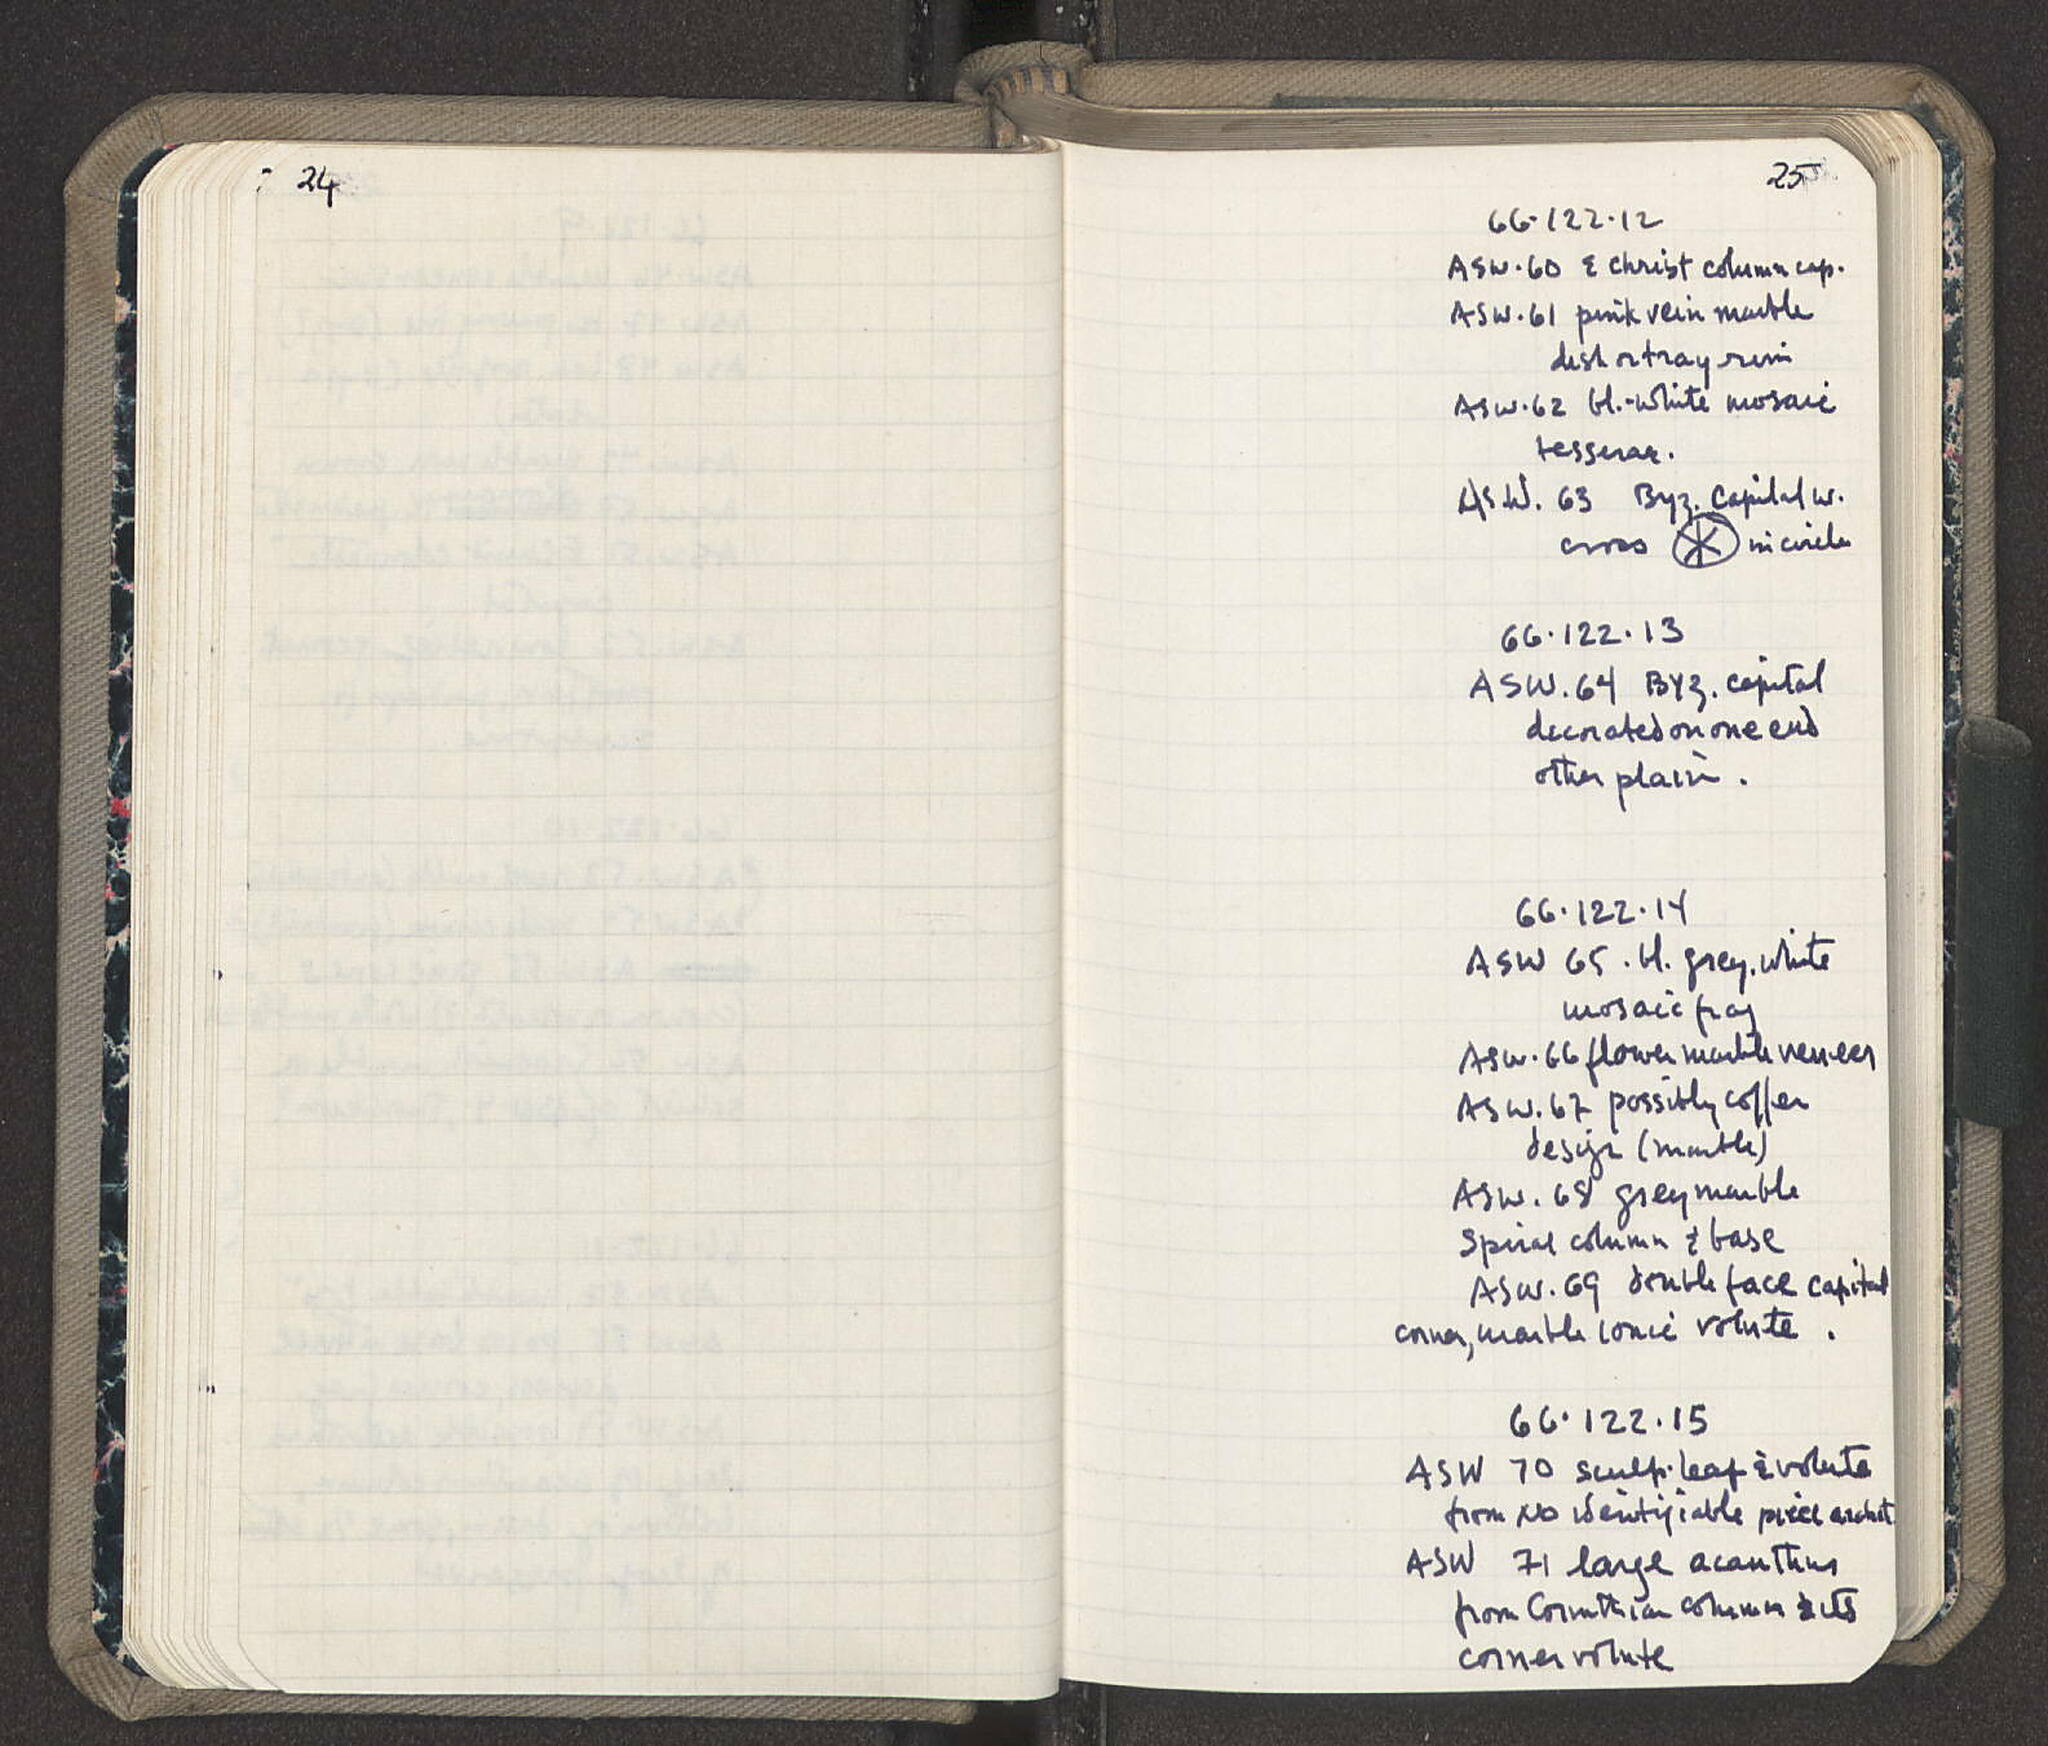 24
25
66.122.12
ASW.60 E Christ column cap.
ASW.61 pink vein marble
dish or tray rim
ASW.62 bl.-white mosaic
tesserae.
ASW. 63 Byz. Capital w.
cross in circle
66.122.13
ASW.64 BYZ. capital
decorated on one end
other plain.
66.122.14
ASW 65. bl. grey. white
mosaic frag
ASW.66 flower marble veneer
ASW.67 possibly coffer
design (marble)
ASW. 68 grey marble
Spiral column & base
ASW.69 double face capital
corner, marble ionic volute.
66.122.15
ASW 70 sculp. leaf & volute
from no identifiable piece
ASW 71 large acanthus
from Corinthian column & its
corner volute